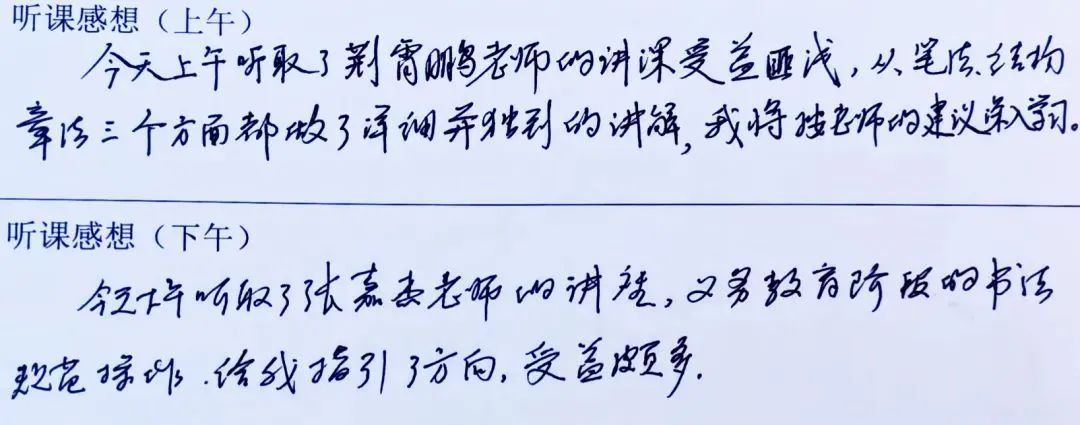 听课感想（上午）
今天上午听取了荆霄鹏老师的讲课受益匪浅，从笔法、结构
章法三个方面都做了详细并独到的讲解，我将按老师的建议深入学习。
听课感想（下午）
今天下午听取了张嘉老师的讲座，义务教育阶段的书法
规范操作，给我指引了方向，受益颇多。